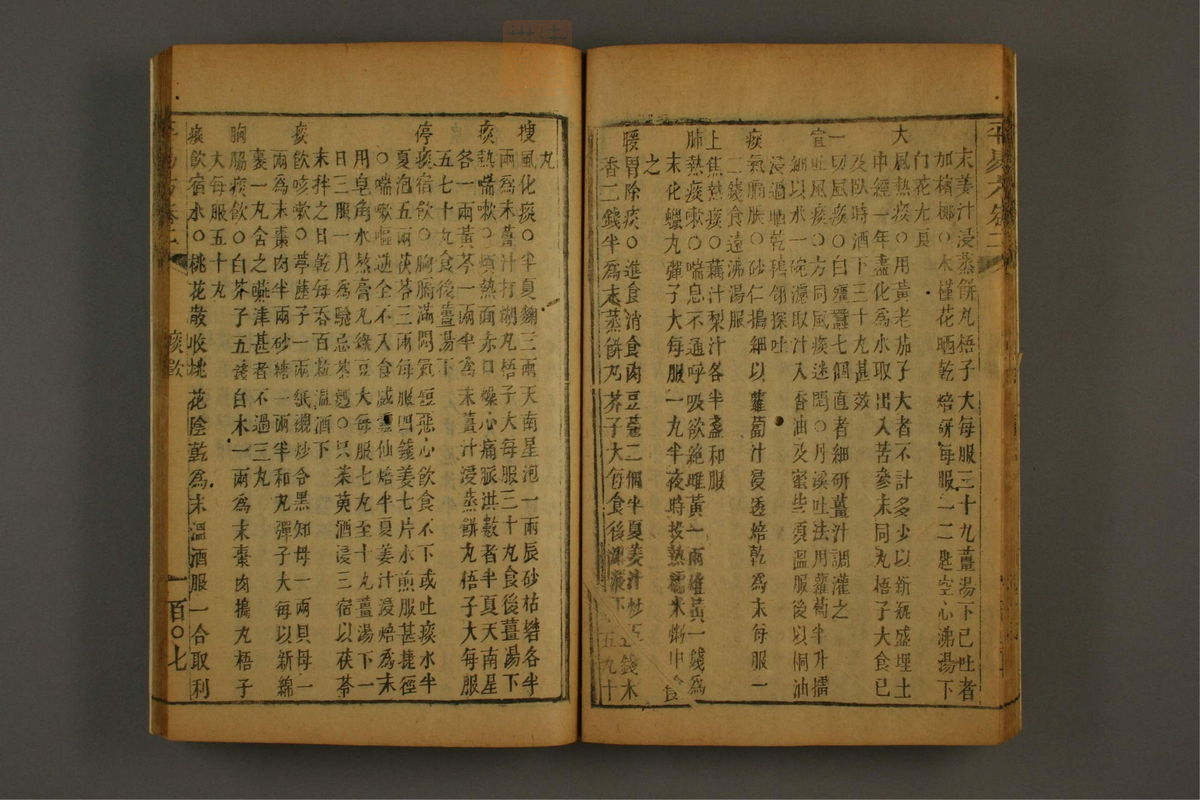 末姜汁浸蒸餅丸梧子大每服三十丸薑湯下已吐者
加檳榔○木槿花晒乾焙研每服一二匙空心沸湯下
白花尤良
大風熱痰○用黃老茄子大者不計多少以新瓶盛埋土
中經一年盡化為水取出入苦參末同丸梧子大食已
及臥時酒下三十丸甚效
一切風痰○白殭蠶七個直者細研薑汁調灌之
宜吐風痰○方同風痰迷悶○丹溪吐法用蘿蔔子半升擂
細以水一碗濾取汁入香油及蜜些須溫服後以桐油
浸過晒乾鵝翎探吐
痰氣膈脹○砂仁搗細以蘿蔔汁浸透焙乾為末每服一
二錢食遠沸湯服
上焦熱痰○藕汁梨汁各半盞和服
肺熱痰嗽○喘息不通呼吸欲絕雌黃一兩雄黃一錢為
末化蠟丸彈子大每服一丸半夜時投熱糯米粥中食
之
暖胃除痰○進食消食肉豆蔻二個半夏姜汁炒五錢木
香二錢半為末蒸餅丸芥子大每食後下五九十
丸
痰飲
痩風化痰○半夏麴三兩天南星泡一兩辰砂枯礬各半
兩為末薑汁打湖丸梧子大每服三十丸食後薑湯下
痰熱喘嗽○煩熱面赤口燥心痛脈洪數者半夏天南星
各一兩黃芩一兩半為末薑汁浸蒸餅丸梧子大每服
五七十丸食後薑湯下
停痰宿飲○胸膈滿悶氣短惡心飲食不下或吐痰水半
夏泡五兩茯苓三兩每服四錢姜七片水煎服甚捷徑
○喘嗽嘔逆全不入食威靈仙焙半夏姜汁浸焙為末
用皂角水熬膏丸綠豆大每服七丸至十丸薑湯下一
日三服一月為驗忌茶麪○只茱萸酒浸三宿以茯苓
末拌之日乾每吞百粒溫酒下
痰飲咳嗽○葶藶子一兩紙襯炒令黑知母一兩貝母一
兩為末棗肉半兩砂糖一兩半和丸彈子大每以新綿
裹一丸含之嚥津甚者不過三丸
胸腸痰飲○白芥子五錢白木一兩為末棗肉搗丸梧子
大每服五十丸
痰飲宿水○桃花散收桃花陰乾為末溫酒服一合取利
一百○七